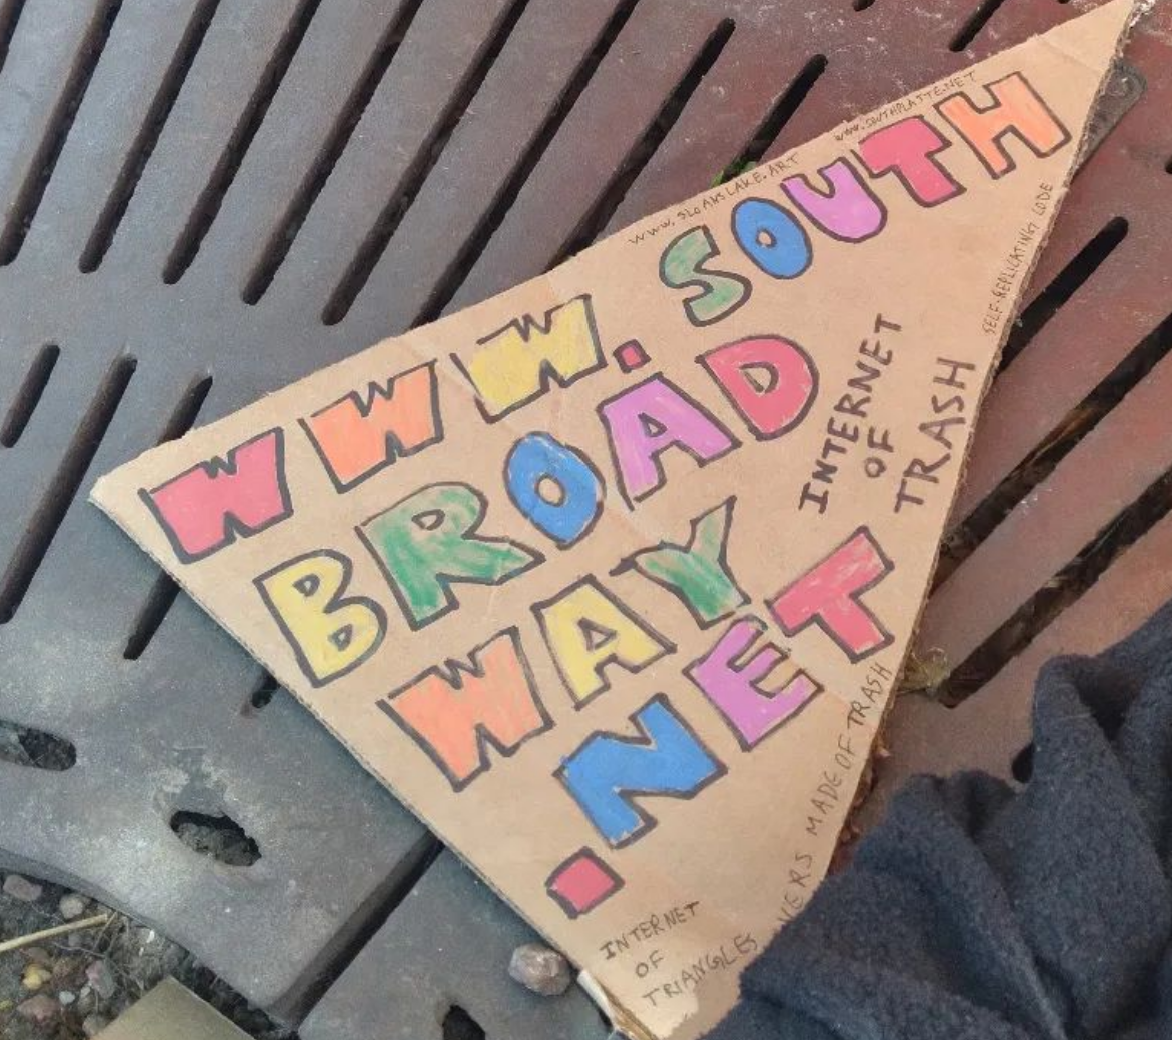 www.SLOANSLAKE.ART
www.SOUTHPLATTE.NET
WWW.SOUTH
BROAD
WAY
.NET
INTERNET
OF
TRASH
SELF-REPLICATING CODE
MADE OF TRASH
INTERNET
OF
TRIANGLES